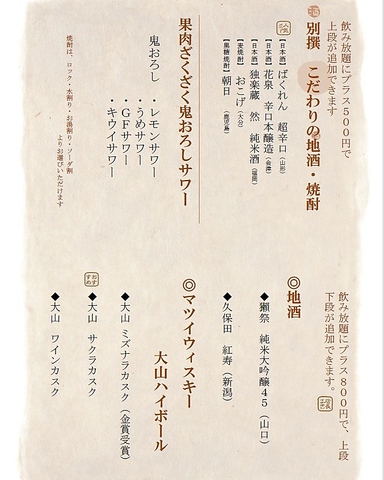 飲み放題にプラス500円で
上段が追加できます
別撰 こだわりの地酒・焼酎
【日本酒】 ばくれん 超辛口 (山形)
【日本酒】 花泉 辛口本醸造 (会津)
【日本酒】 独楽蔵 然 純米酒 (福岡)
【麦焼酎】 おこげ (大分)
【黒糖焼酎】 朝日 (鹿児島)
果肉ざくざく鬼おろしサワー
鬼おろし ・レモンサワー
・うめサワー
・GFサワー
・キウイサワー
焼酎は、ロック・水割り・お湯割り・ソーダ割
よりお選びいただけます
飲み放題にプラス800円で、上段
下段が追加できます。
◎地酒
◆獺祭 純米大吟醸45 (山口)
◆久保田 紅寿 (新潟)
◎マツイウィスキー
大山ハイボール
◆大山 ミズナラカスク (金賞受賞)
おすすめ
◆大山 サクラカスク
◆大山 ワインカスク